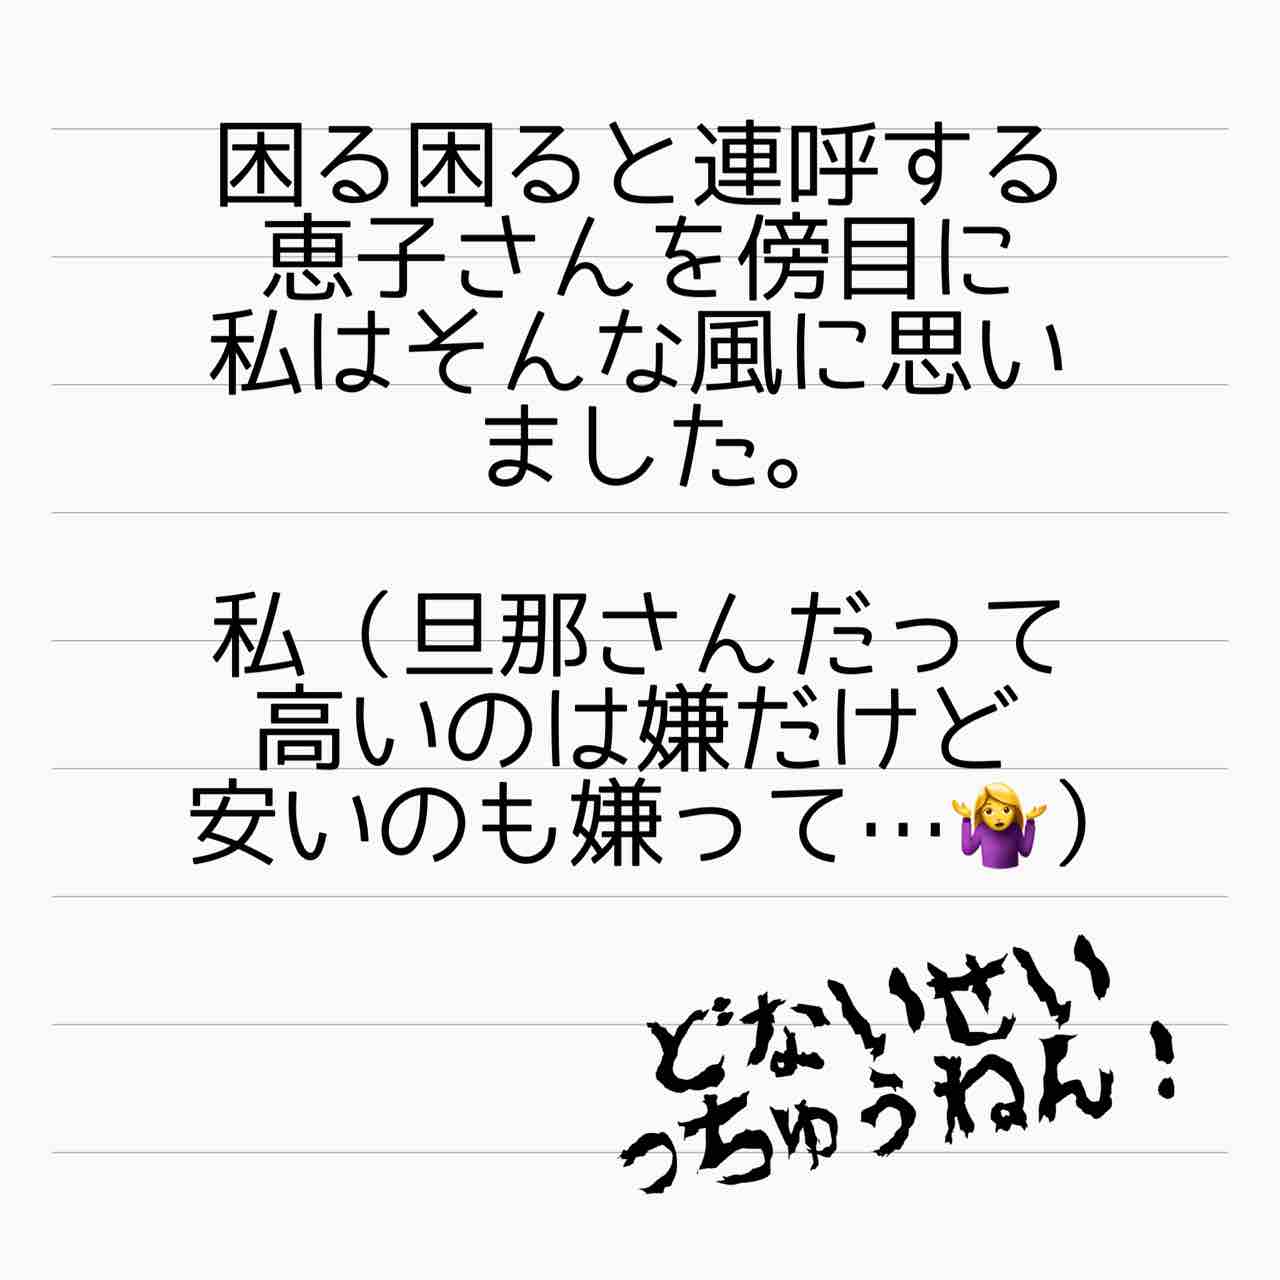 困る困ると連呼する
恵子さんを傍目に
私はそんな風に思い
ました。
私（旦那さんだって
高いのは嫌だけど
安いのも嫌って…🤷‍♀️）
どないせい
っちゅうねん！